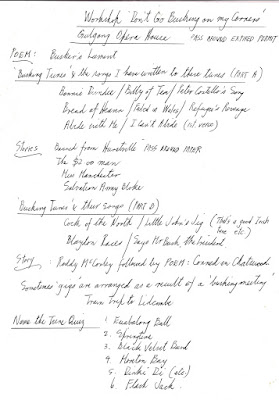 Workshop 'Don't Go Busking on my Corner'
Gulgong Opera House PASS AROUND EXPIRED PERMIT
POEM: Busker's Lament
'Busking Tunes & the songs I have written to these tunes' (PART A)
Bonnie Dundee / Billy of Tea / Peter Costello's Song
Bread of Heaven / Wales / Refugee's
Abide with Me / I Can't Abide (
Stories Banned from Hurstville PASS AROUND PAPER
The $200 man
Miss Manchester
Salvation Army Bloke
'Busking Tunes & their songs' (PART B)
Cock of the North / Little John's Jig (That's a good Irish tune etc)
Blaydon Races / Says Mr Bush, the President.
Story: Roddy McCorley followed by POEM: Conned on Chatswood
Sometimes 'gigs' are arranged as a result of a 'busking meeting'
Train trip to Lidcombe
Name the Tune Quiz
1. Euabalong Ball
2. Springtime
3. Black Velvet Band
4. Moreton Bay
5. Dinki Di
6. Flash Jack